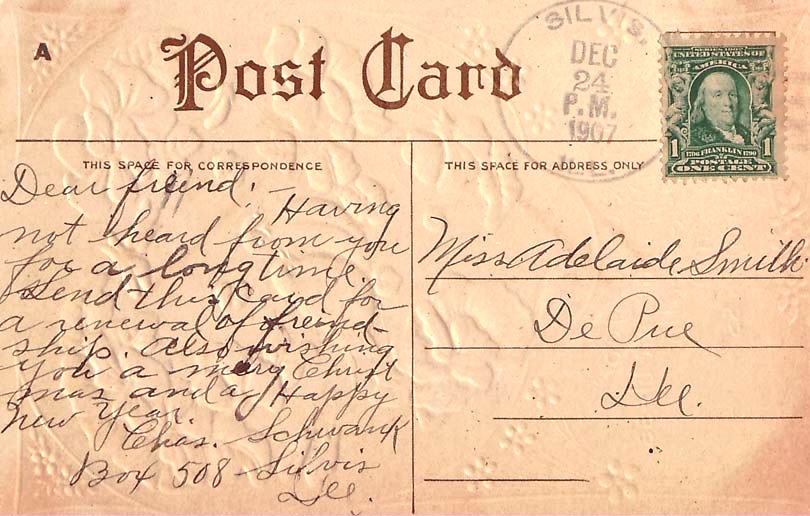 A
Post Card
SILVIS,
DEC
24
P.M.
1907
SERIES 1902
UNITED STATES OF
AMERICA
1 1706 FRANKLIN 1790 1
POSTAGE
ONE CENT
THIS SPACE FOR CORRESPONDENCE
THIS SPACE FOR ADDRESS ONLY
Dear friend: –
Having
not heard from you
for a long time.
Send this Card for
a renewal of freind-
ship. Also wishing
you a merry Christ
mas and a Happy
New Year
Chas. Schwank
Box 508 Silvis
Ill.
Miss Adelaide Smith
De Pue
Ill.